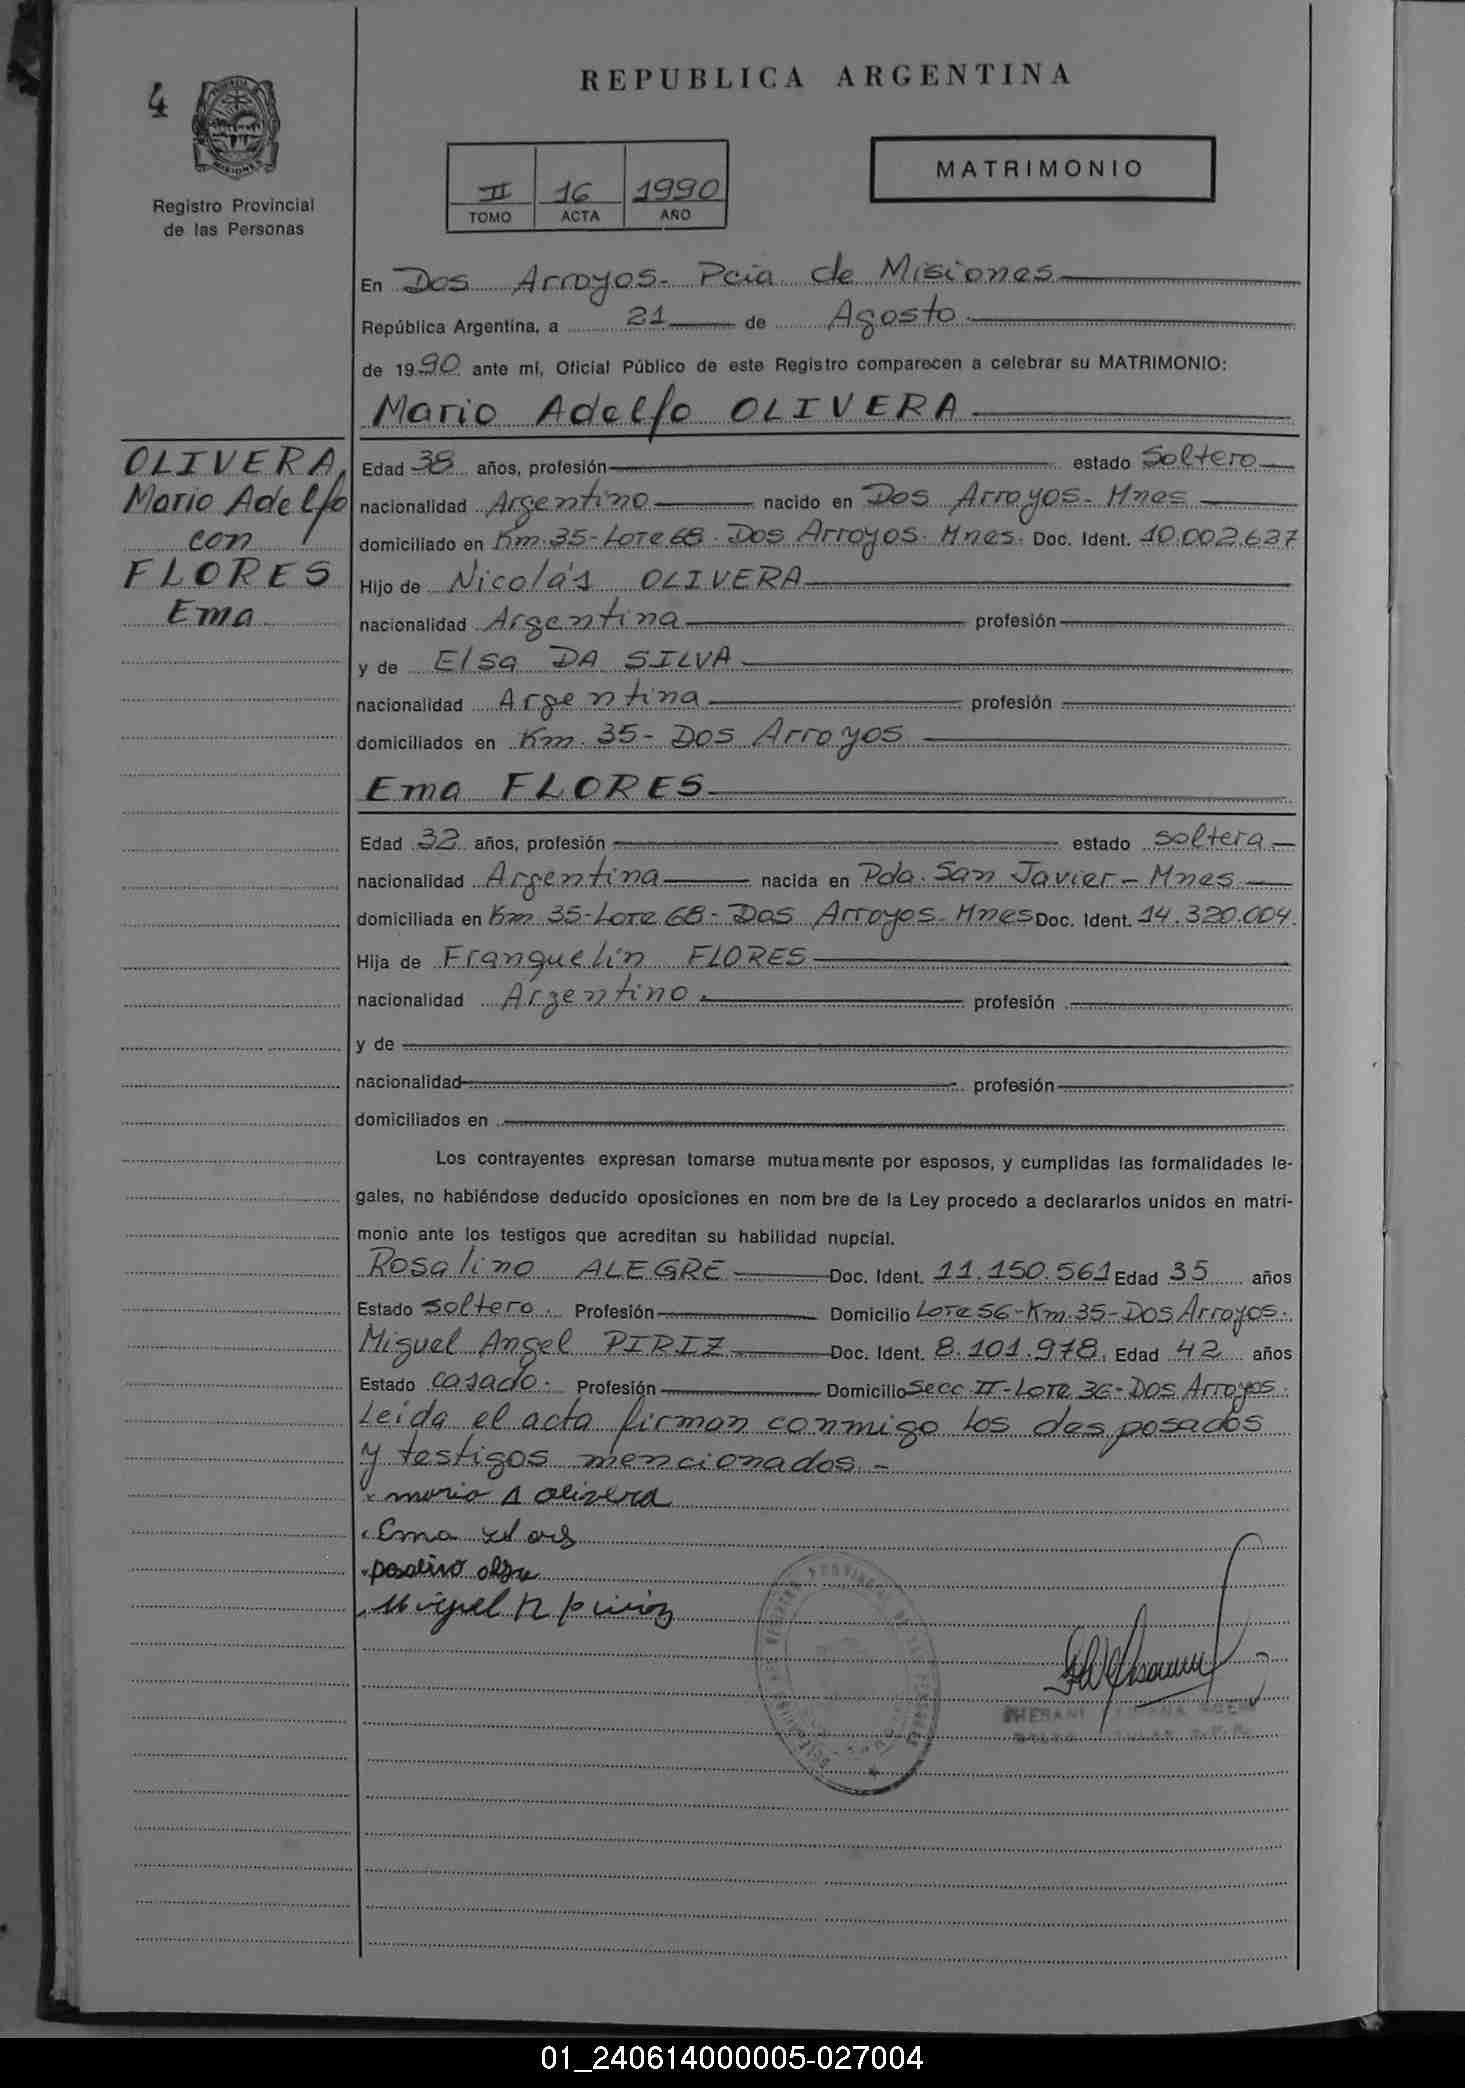 4
REPUBLICA ARGENTINA
Registro Provincial
de las Personas
II 16 1990
TOMO ACTA AÑO
MATRIMONIO
En Dos Arroyos- Pcia de Misiones
República Argentina, a 21 de Agosto
de 1990 ante mí, Oficial Público de este Registro comparecen a celebrar su MATRIMONIO:
Mario Adelfo OLIVERA
OLIVERA,
Mario Adelfo
con
FLORES
Ema
Edad 38 años, profesión estado Soltero
nacionalidad Argentino nacido en Dos Arroyos- Mnes
domiciliado en Km. 35-Lote 68. Dos Arroyos. Mnes. Doc. Ident. 10.002.637
Hijo de Nicolás OLIVERA
nacionalidad Argentina profesión
y de Elsa DA SILVA
nacionalidad Argentina profesión
domiciliados en Km. 35- Dos Arroyos
Ema FLORES
Edad 32 años, profesión estado soltera
nacionalidad Argentina nacida en Pda. San Javier- Mnes
domiciliada en Km 35-Lote 68- Dos Arroyos- Mnes Doc. Ident. 14.320.004.
Hija de Franquelín FLORES
nacionalidad Argentino. profesión
y de
nacionalidad profesión
domiciliados en
Los contrayentes expresan tomarse mutuamente por esposos, y cumplidas las formalidades le-
gales, no habiéndose deducido oposiciones en nom bre de la Ley procedo a declararlos unidos en matri-
monio ante los testigos que acreditan su habilidad nupcial.
Rosalino ALEGRE Doc. Ident. 11.150.561 Edad 35 años
Estado soltero. Profesión Domicilio Lote 56-Km.35-Dos Arroyos.
Miguel Angel PIRIZ Doc. Ident. 8.101.978. Edad 42 años
Estado casado. Profesión Domicilio Secc II-Lote 36-Dos Arroyos.
Leída el acta firman conmigo los desposados
y testigos mencionados.-
x mario A olivera
Ema
Miguel A piriz
01_240614000005-027004